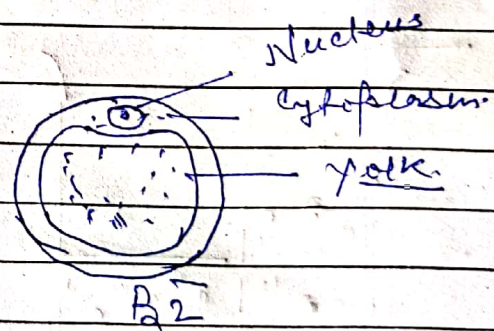 Nucleus
Cytoplasm.
Yolk.
B2